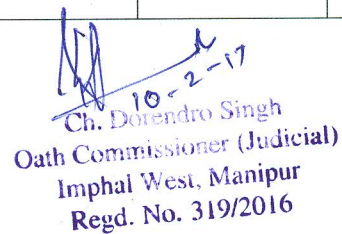 10-2-17
Ch. Dorendro Singh
Oath Commissioner (Judicial)
Imphal West, Manipur
Regd. No. 319/2016